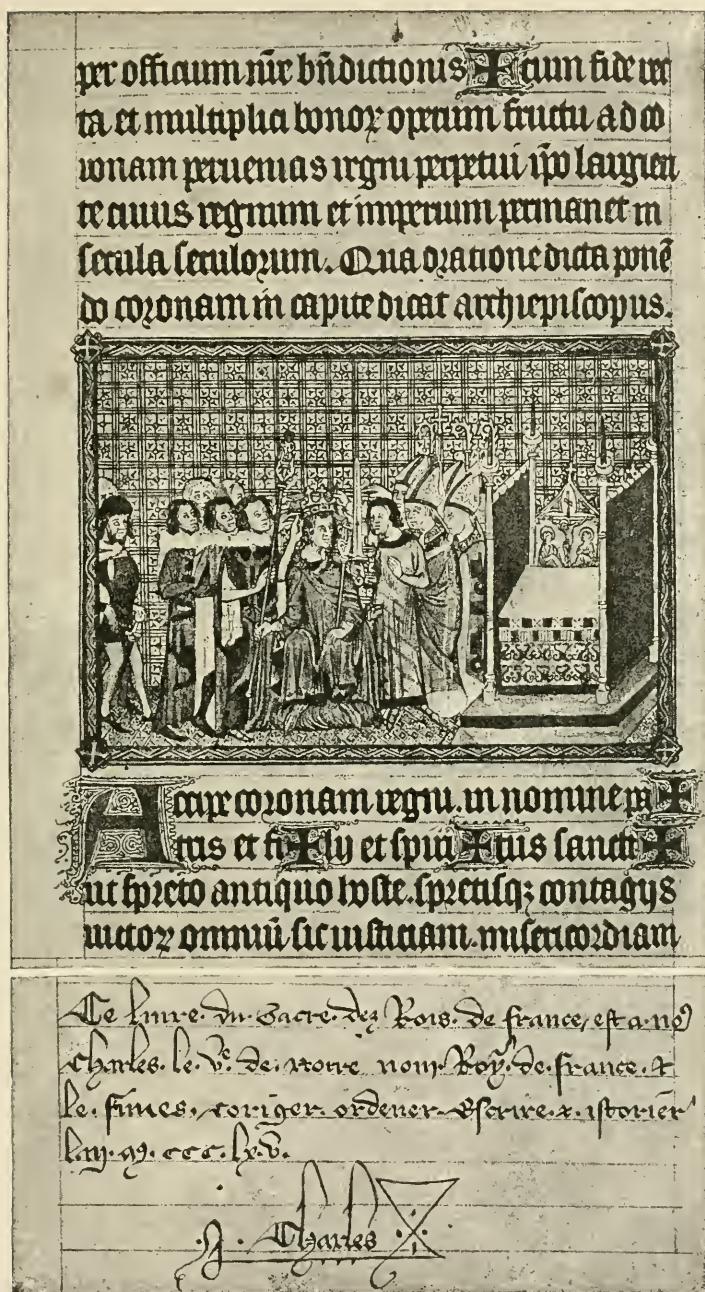 per officium nr̄e bn̄dictionis ✠ cum fide rec
ta et multiplici bonoꝝ operum fructu ad co
ronam peruenias regni perpetui ip̄o largien
te cuius regnum et imperium permanet in
secula seculorum. Qua oratione dicta ponē
do coronam in capite dicat archiepiscopus.
Accipe coronam regni. in nomine pa ✠
tris et fi ✠ lij et spiri ✠ tus sancti ✠
ut spreto antiquo hoste. spretisqꝫ contagijs
uictoꝝ omniū sic iusticiam. misericordiam
Ce liure. du. Sacre. dez Rois. de france, est a. no9
Charles. le. ve. de. notre nom. Roy. de. france. &
le. fimes. coriger. ordener. Escrire. &. istorier
lan. m. ccc. lx. v.
Charles